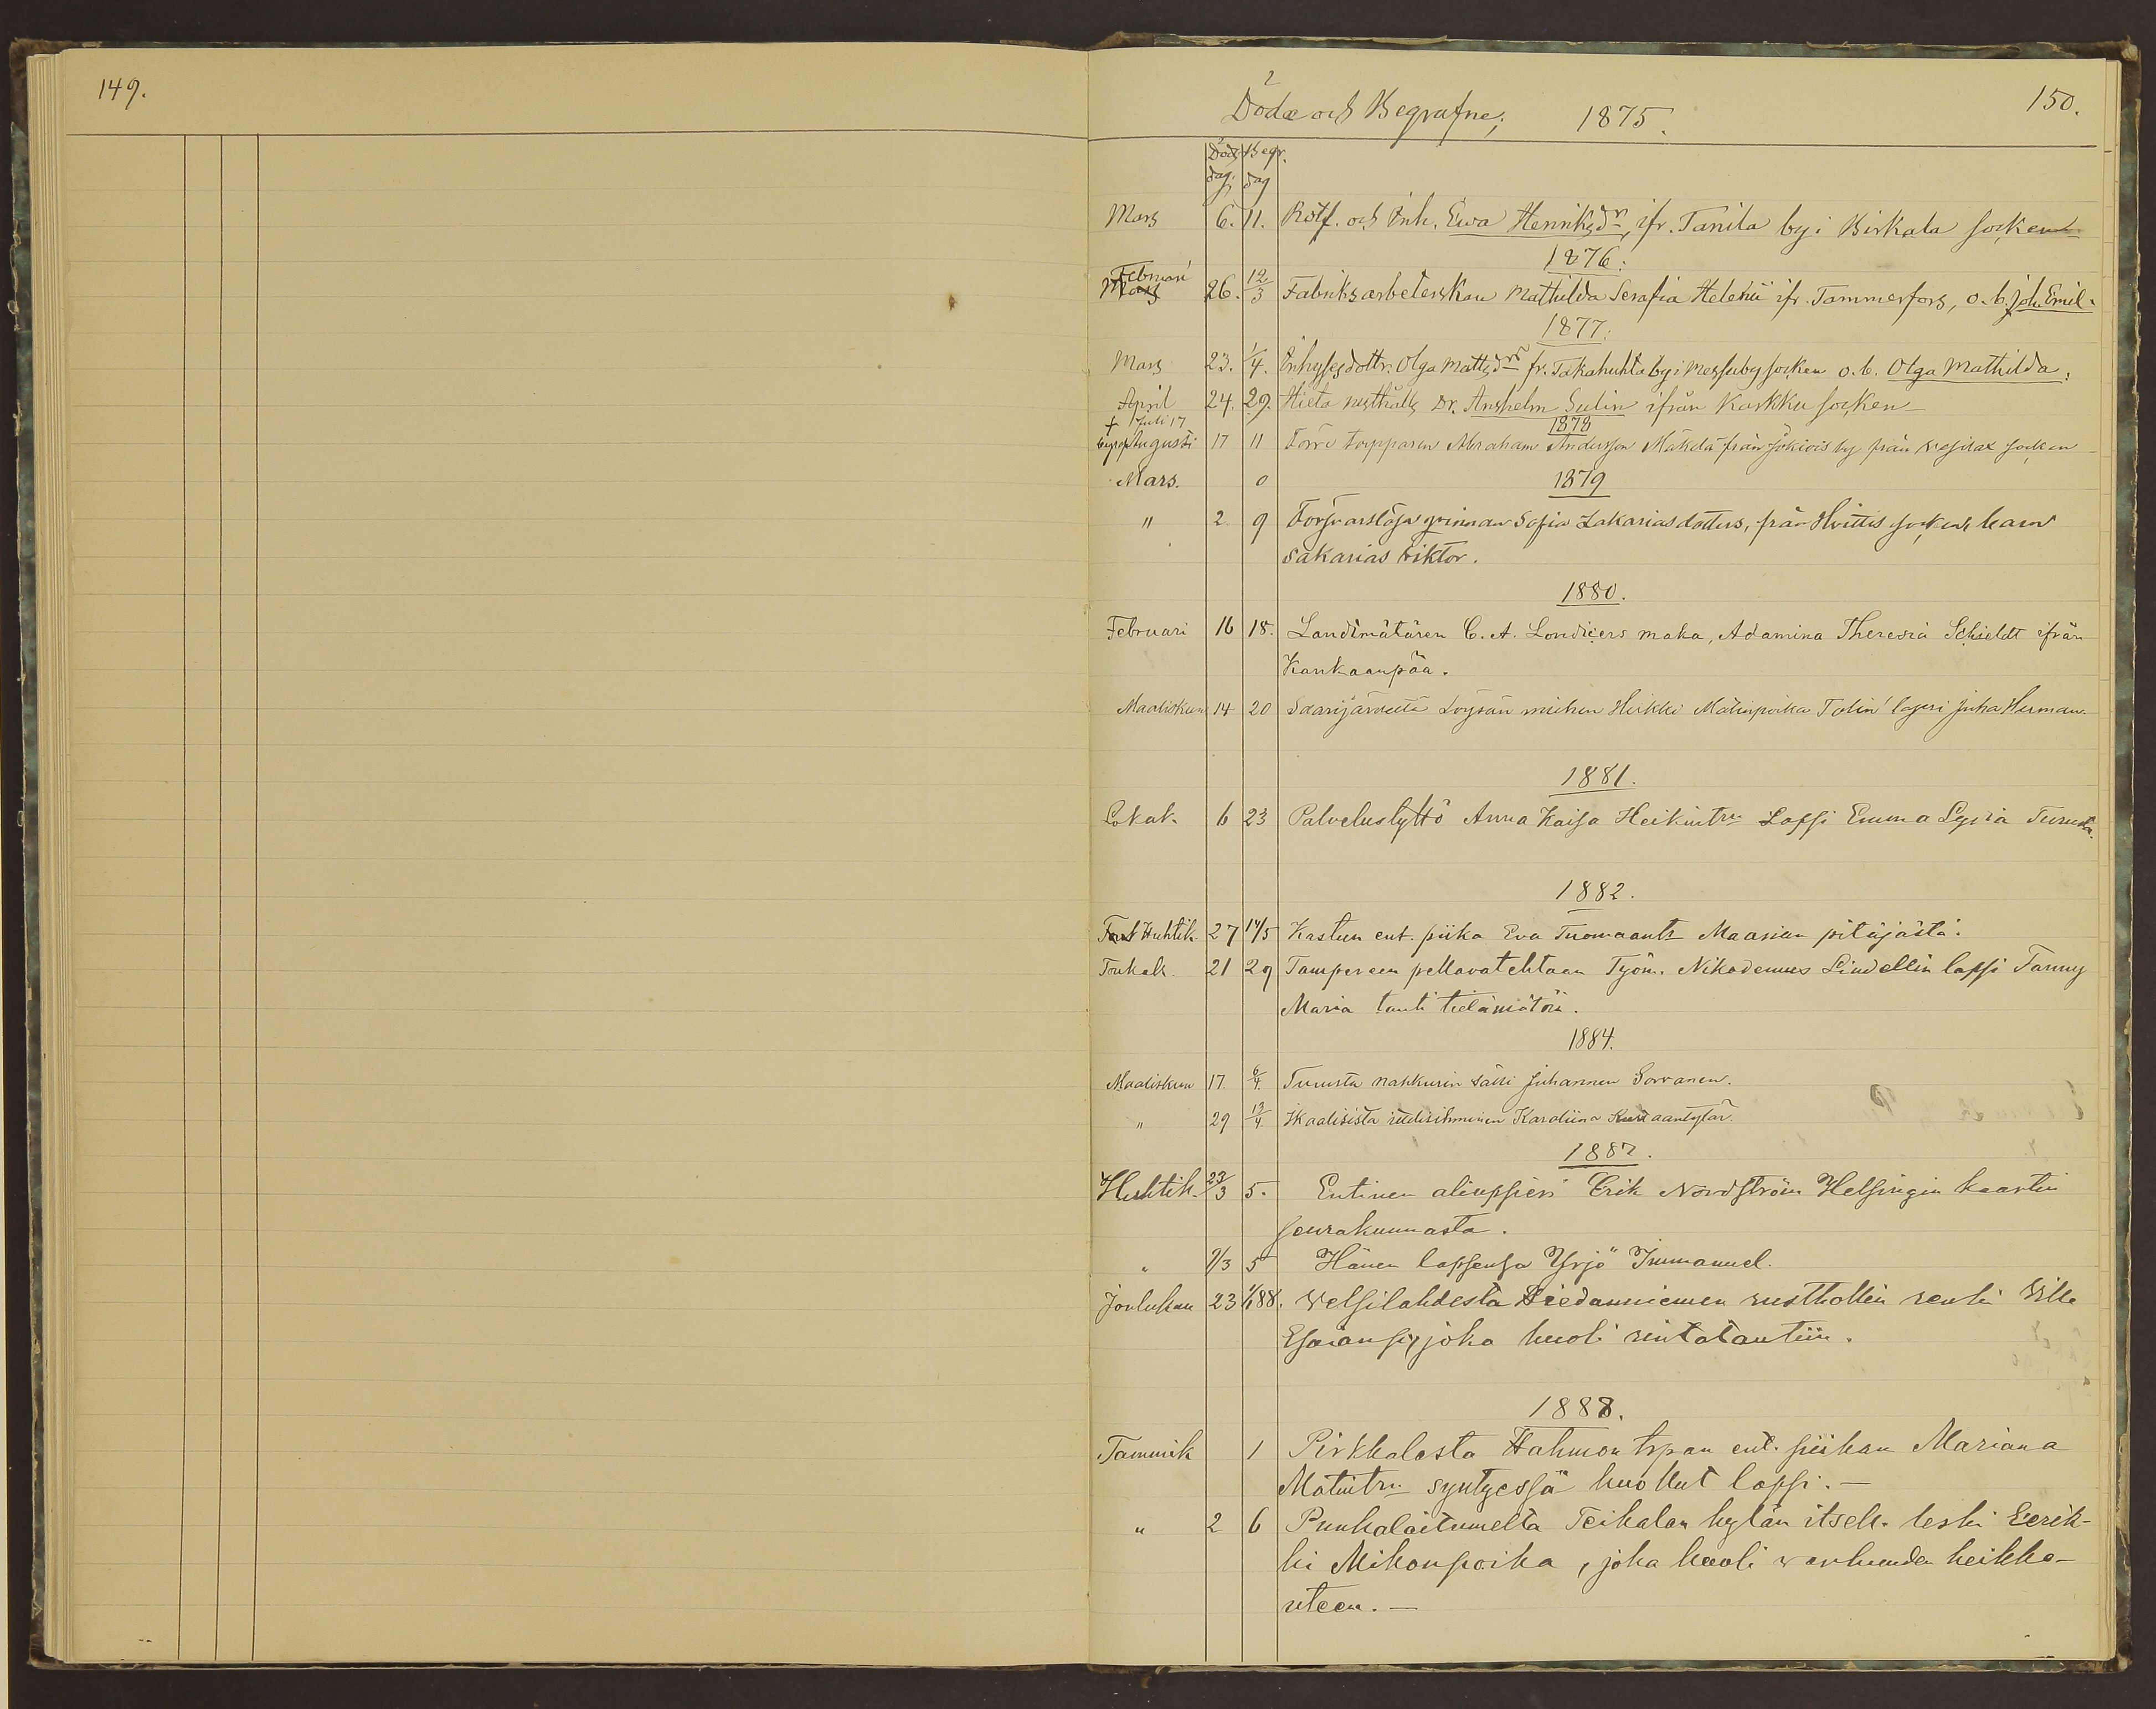 149.
Döda och Begrafne; 1875. 150.
Döds Begr.
dag. dag
Mars 6. 11. Rotf. och Inh. Ewa Henriksdr, ifr. Tanila by i Birkala socken
1876:
Februari
Mars 26. 12/3 Fabriksarbeterskan Mathilda Serafia Helenii ifr. Tammerfors, o. b. Joh. Emil.
1877:
Mars 23. 1/4. Inhyses dottr. Olga Mattsdrs fr. Takahuhta by i Messuby socken o. b. Olga Mathilda.
April 24. 29. Hieta rusthålls Dr. Anshelm Sulin ifrån Karkku socken
† Juli 17 1878
begrof Augusti 17 11 Förre torpparen Abraham Andersson Mäkelä från Jokiois by från Wesilax socken
Mars. 0 1879
" 2 9 Försvarslösa qvinnan Sofia Zakariasdotters, från Hvittis socken, barn
Sakarias Viktor.
1880.
Februari 16 18. Landtmätaren C. A. Londicers maka, Adamina Theresia Schieldt ifrån
Kankaanpää.
Maaliskuu 14 20 Saarijärveltä Löysän miehen Heikki Matinpoika Tolin' lapsi Juha Herman.
1881.
Lokak. 6 23 Palvelustyttö Anna Kaisa Heikintrn Lapsi Emma Lyria Turusta.
1882.
Huhtik. 27 14/5 Kastun ent. piika Eva Tuomaantr Maarian pitäjästä.
Toukok. 21 29 Tampereen pellavatehtaan Työm. Nikodemus Lindellin lapsi Fanny
Maria tauti tietämätöin.
1884.
Maaliskuu 17. 6/4. Turusta nahkurin sälli Juhannen Sorvanen.
" 29 13/4. Ikaalisista itsellisihminen Karoliina Kustaantytär.
1887.
Huhtik. 23/3 5. Entinen aliupsieri Erik Nordström Helsingin kaartin
seurakunnasta.
" 9/3 5 Hänen lapsensa Yrjö Immanuel.
Joulukuu 23 1/1 88. Wesilahdesta Hiedanniemen rusthollin renki Wille
Esaiansp, joka kuoli rintatautiin.
1888.
Tammik 1 Pirkkalasta Hahmon torpan ent. piikan Mariana
Matintrn syntyessä kuollut lapsi.—
" 2 6 Punkalaitumelta Teikalan kylän itsell. leski Eerik-
ki Mikonpoika, joka kuoli wanhuuden heikko-
uteen.—